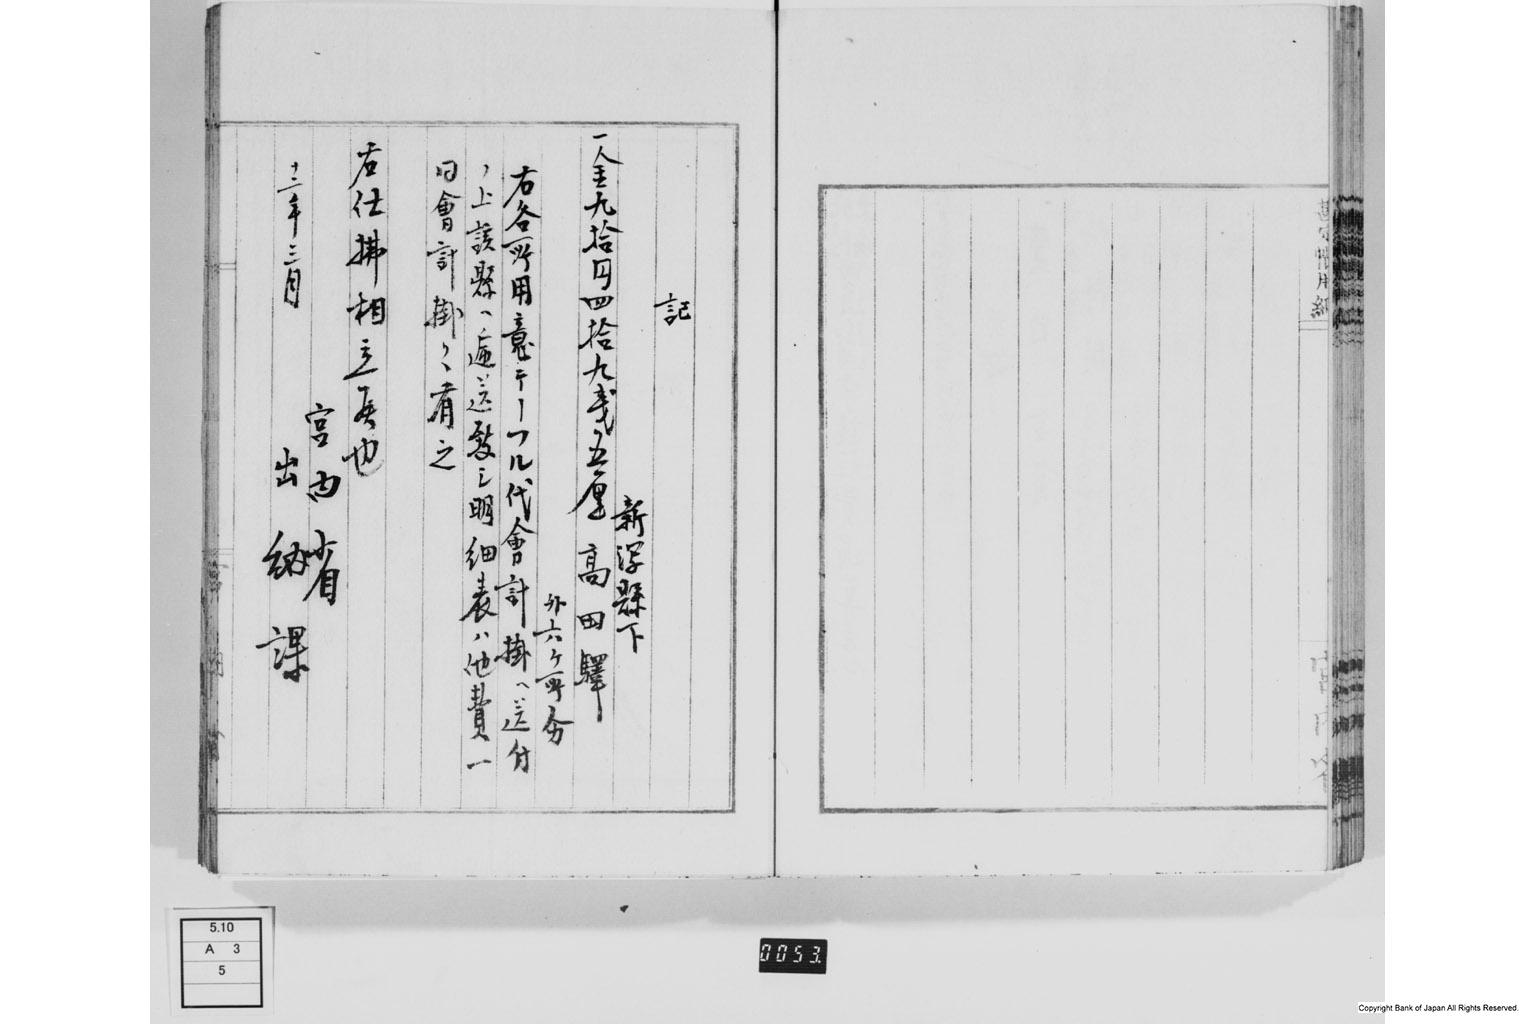 記
新潟縣下
一金九拾円四拾九戋五厘 高田驛
外六ケ所分
右各所用意テーフル代會計掛ヘ送付
ノ上該縣ヘ逓送致シ明細表ハ他費一
同會計掛ニ有之
右仕拂相立候也
宮内省
十二年三月 出納課
5.10
A 3
5
0053.
Copyright Bank of Japan All Rights Reserved.